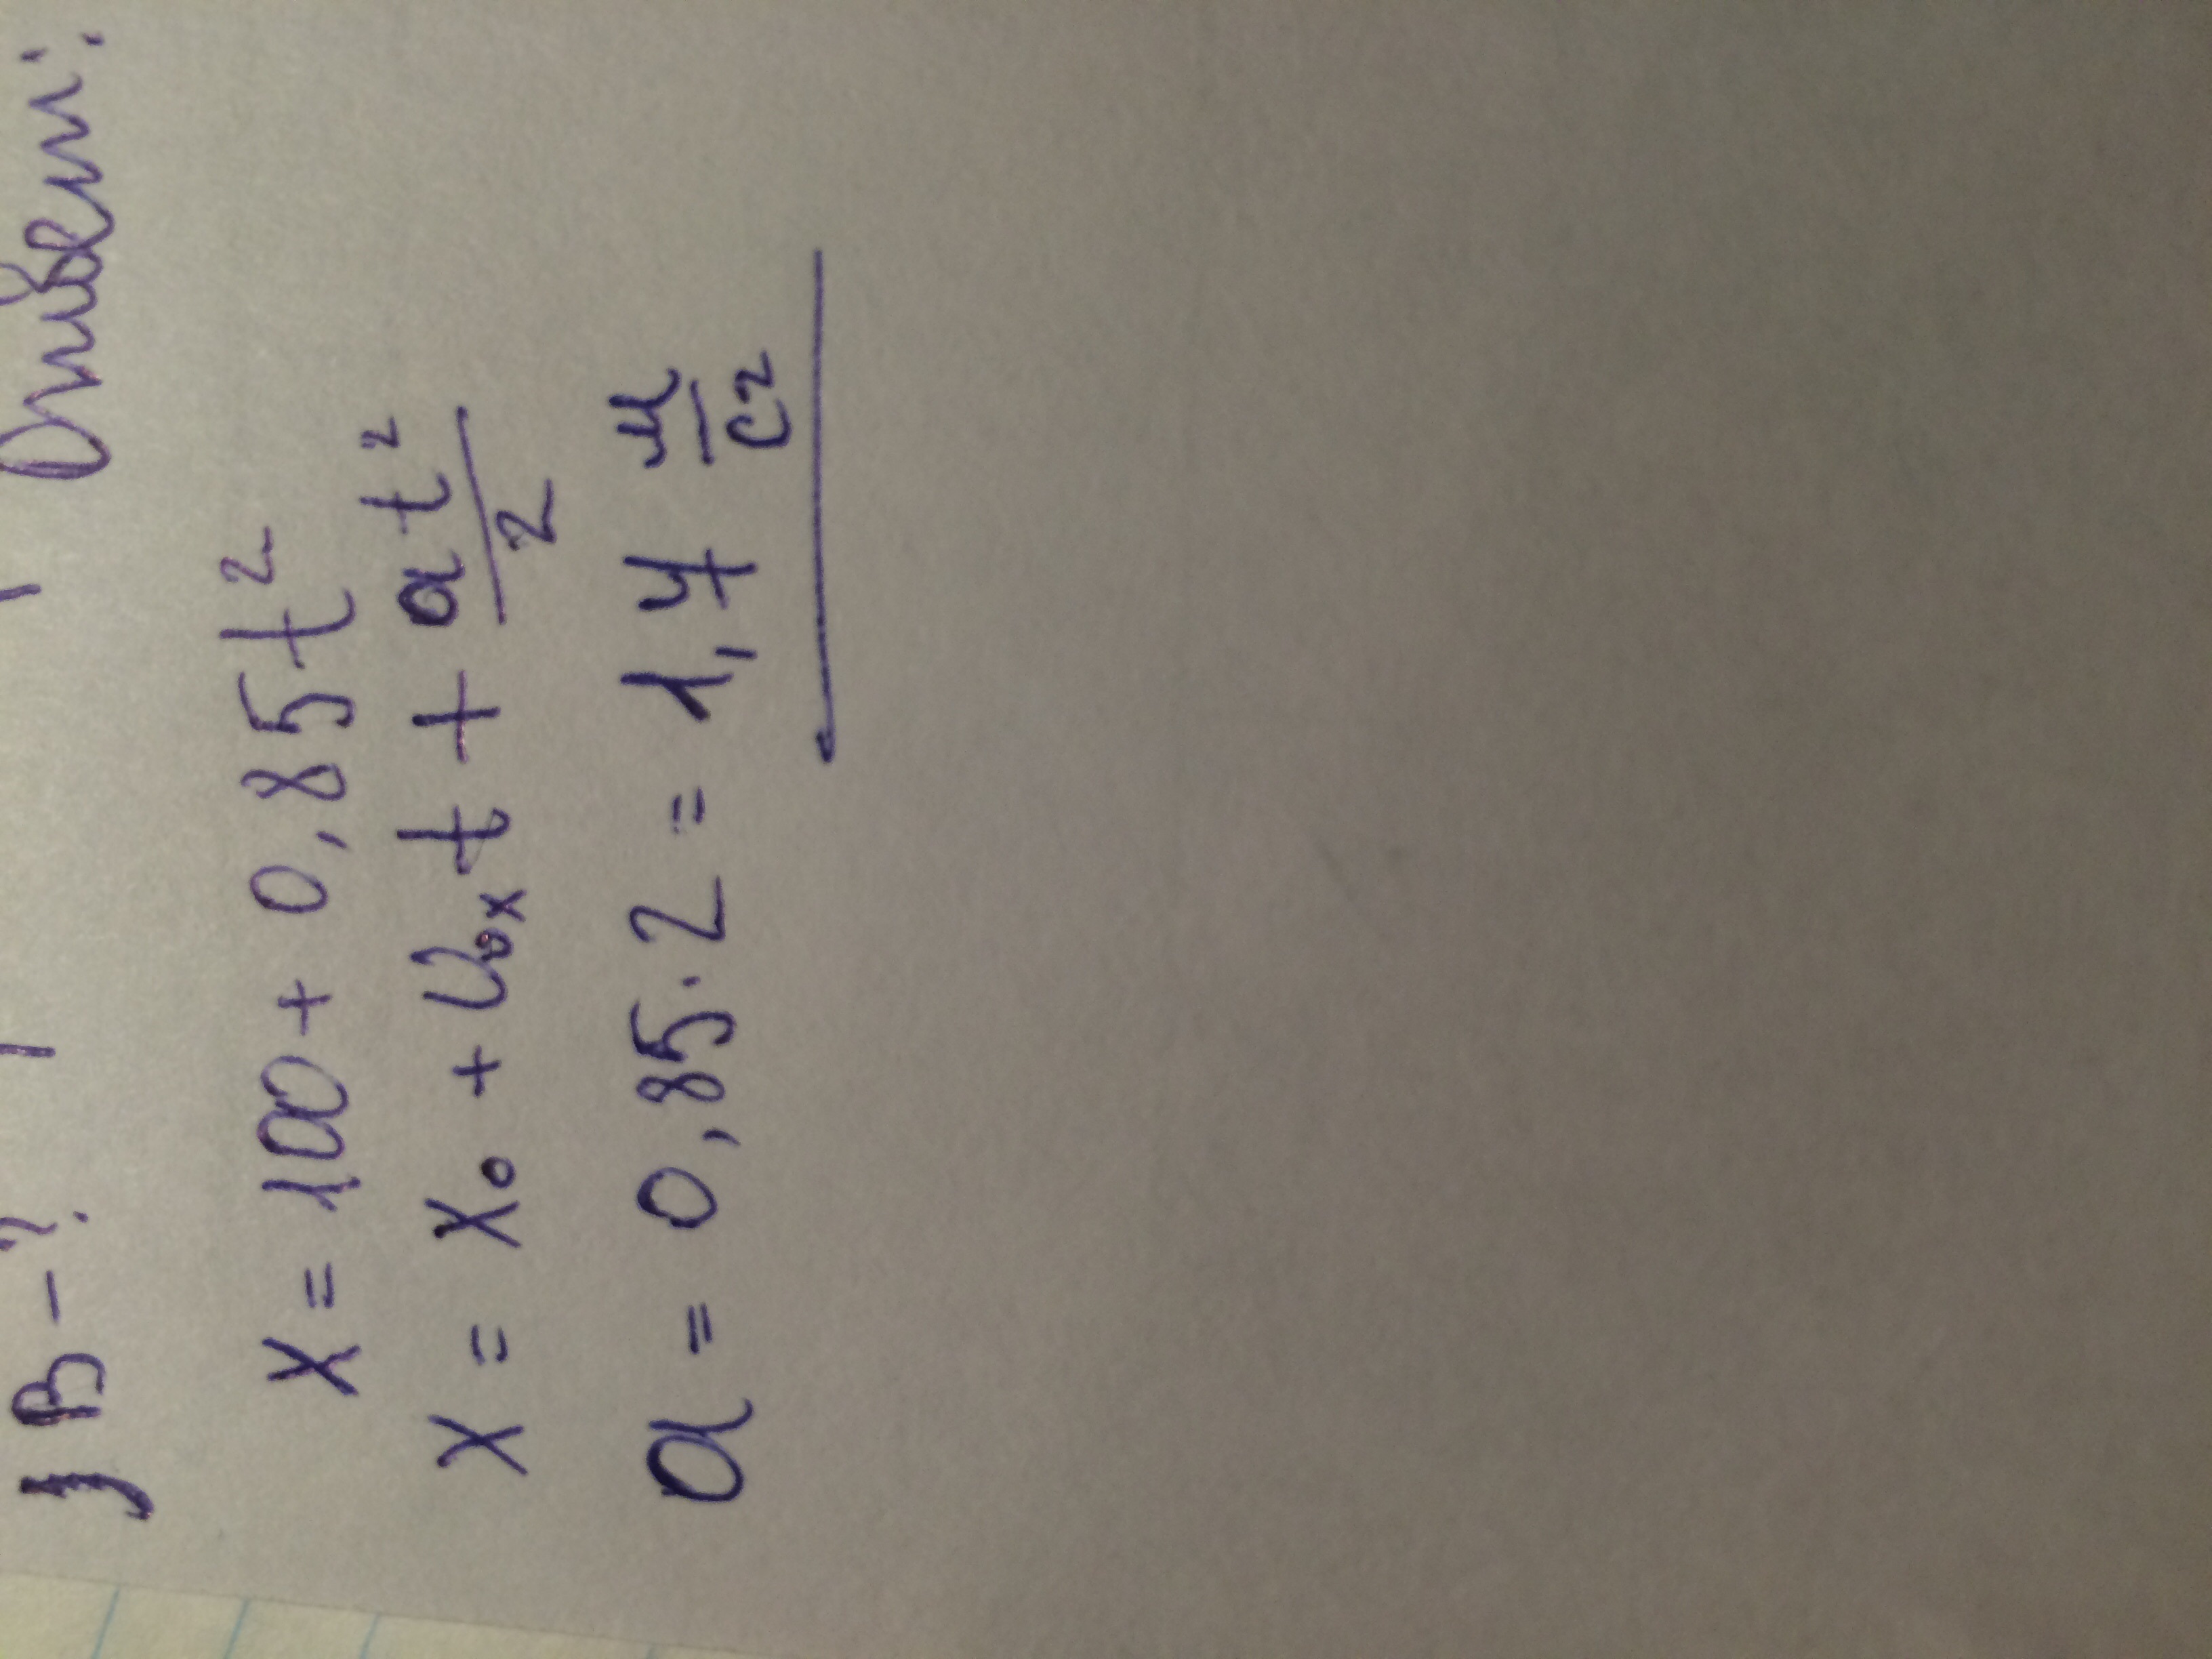 B - ? Ответ:
x = 100 + 0,85t²
x = x₀ + υ₀ₓt + at²/2
a = 0,85 · 2 = 1,7 м/с²